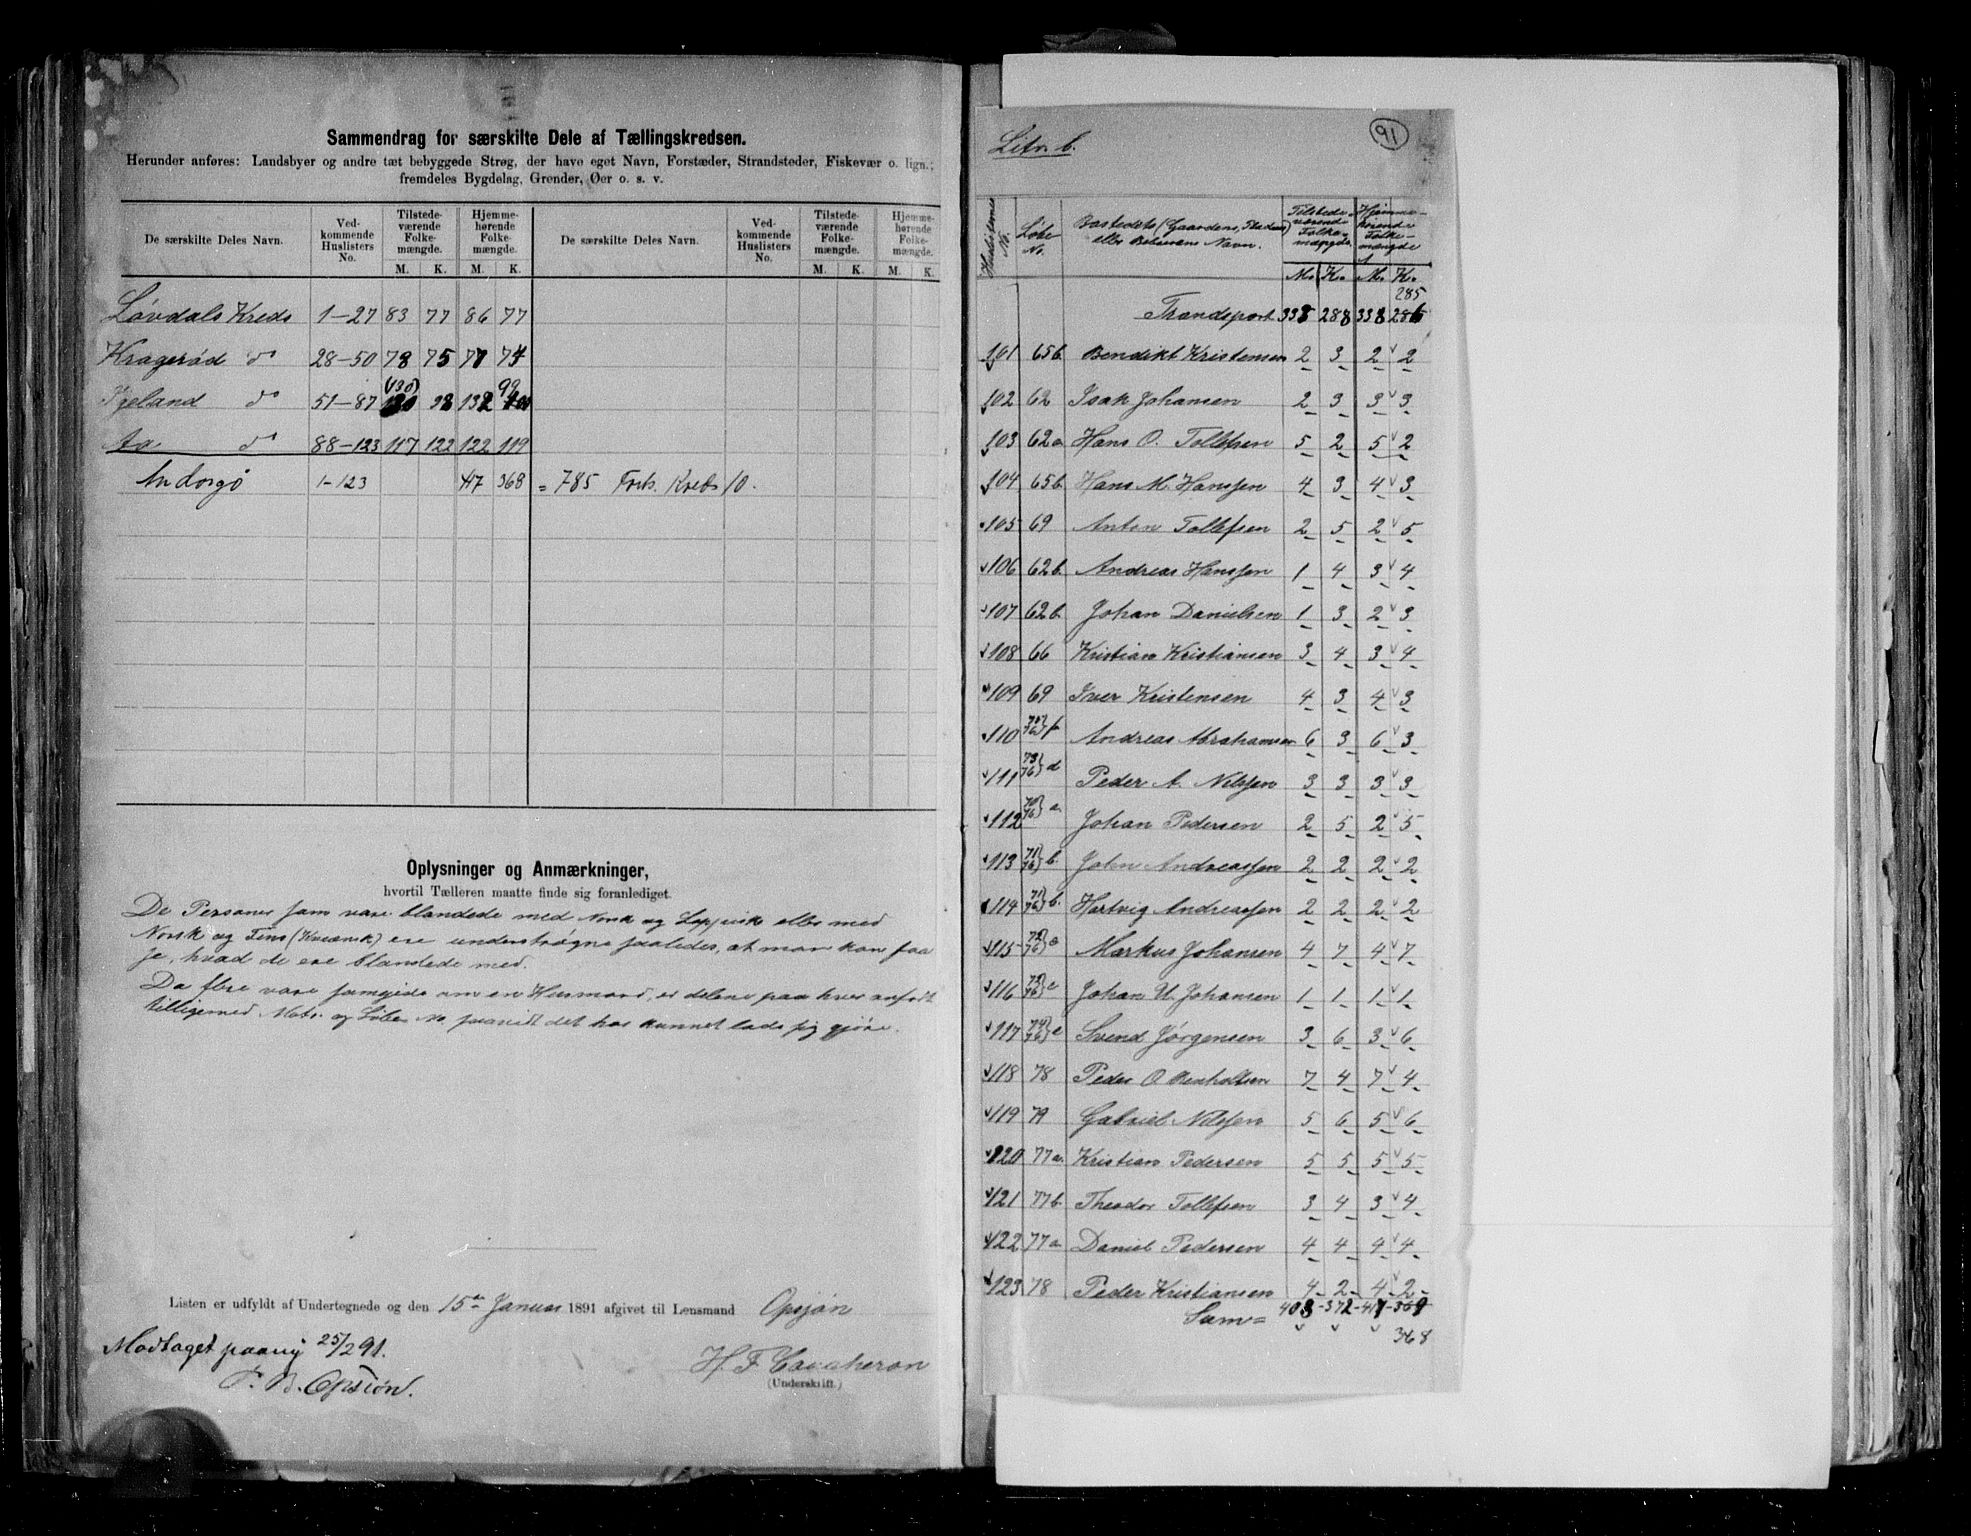 Sammendrag for særskilte Dele af Tællingskredsen.
Herunder anføres: Landsbyer og andre tæt bebyggede Strøg, der have eget Navn, Forstæder, Strandsteder, Fiskevær o. lign.;
fremdeles Bygdelag, Grender, Øer o. s. v.
De særskilte Deles Navn. Ved-kommende Huslisters No. Tilstede-værende Folke-mængde. Hjemme-hørende Folke-mængde. De særskilte Deles Navn. Ved-kommende Huslisters No. Tilstede-værende Folke-mængde. Hjemme-hørende Folke-mængde.
M. K. M. K. M. K. M. K.
Løvdals Kreds 1-27 83 77 86 77
Kragerød do 28-50 78 75 77 74
Kjeland do 51-87 130 98 132 99
Aa do 88-123 117 122 122 119
Andorgö 1-123 417 368 = 785 Forh. Kreds 10.
Oplysninger og Anmærkninger,
hvortil Tælleren maatte finde sig foranlediget.
De Personer som vare blandede med Norsk og Lappisk eller med
Norsk og Fins (Kvænsk) ere understrøgne saaledes, at man kan faa
se, hvad de ere blandede med.
Da flere vare samgide om en Husmand, er delene paa hver anført
tilligemed Matr. og Løbe No saavidt det har kunnet lade sig gjøre.
Listen er udfyldt af Undertegnede og den 15de Januar 1891 afgivet til Lensmand Opsjøn
H F Cavaheron
(Underskrift.)
Modtaget paany 25/2 91.
P. B. Opsiøn.
Litr. b.
91
Huslisternes No. Løbe No. Bostedets (Gaardens, Stedets) eller Beboerens Navn. Tilstede værende Folke-mængde. Hjemme-hørende Folke-mængde
M. K. M. K.
285
Transport 338 288 338 286
101 65b Bendikt Kristensen 2 3 2 2
102 62 Isak Johansen 2 3 3 3
103 62a Hans O. Tollefsen 5 2 5 2
104 65b Hans M. Hanssen 4 3 4 3
105 69 Anton Tollefsen 2 5 2 5
106 62b. Andreas Hanssen 1 4 3 4
107 62b. Johan Danielsen 1 3 2 3
108 66 Kristian Kristiansen 3 4 3 4
109 69 Iver Kristensen 4 3 4 3
110 75/76 f Andreas Abrahamsen 6 3 6 3
111 73/76 d Peder A. Nilssen 3 3 3 3
112 70/76 a. Johan Pedersen 2 5 2 5
113 71/76 b. John Andreassen 2 2 2 2
114 71/76 b. Hartvig Andreassen 2 2 2 2
115 72/76 c Markus Johansen 4 7 4 7
116 72/76 c Johan U. Johansen 1 1 1 1
117 74/76 e Svend Jørgensen 3 6 3 6
118 78 Peder O Benholtsen 7 4 7 4
119 79 Gabriel Nilssen 5 6 5 6
120 77a. Kristian Pedersen 5 5 5 5
121 77b. Theodor Tollefsen 3 4 3 4
122 77a Daniel Pedersen 4 4 4 4
123 78 Peder Kristiansen 4 2 4 2
Sum = 408 - 372 - 417 - 369
368